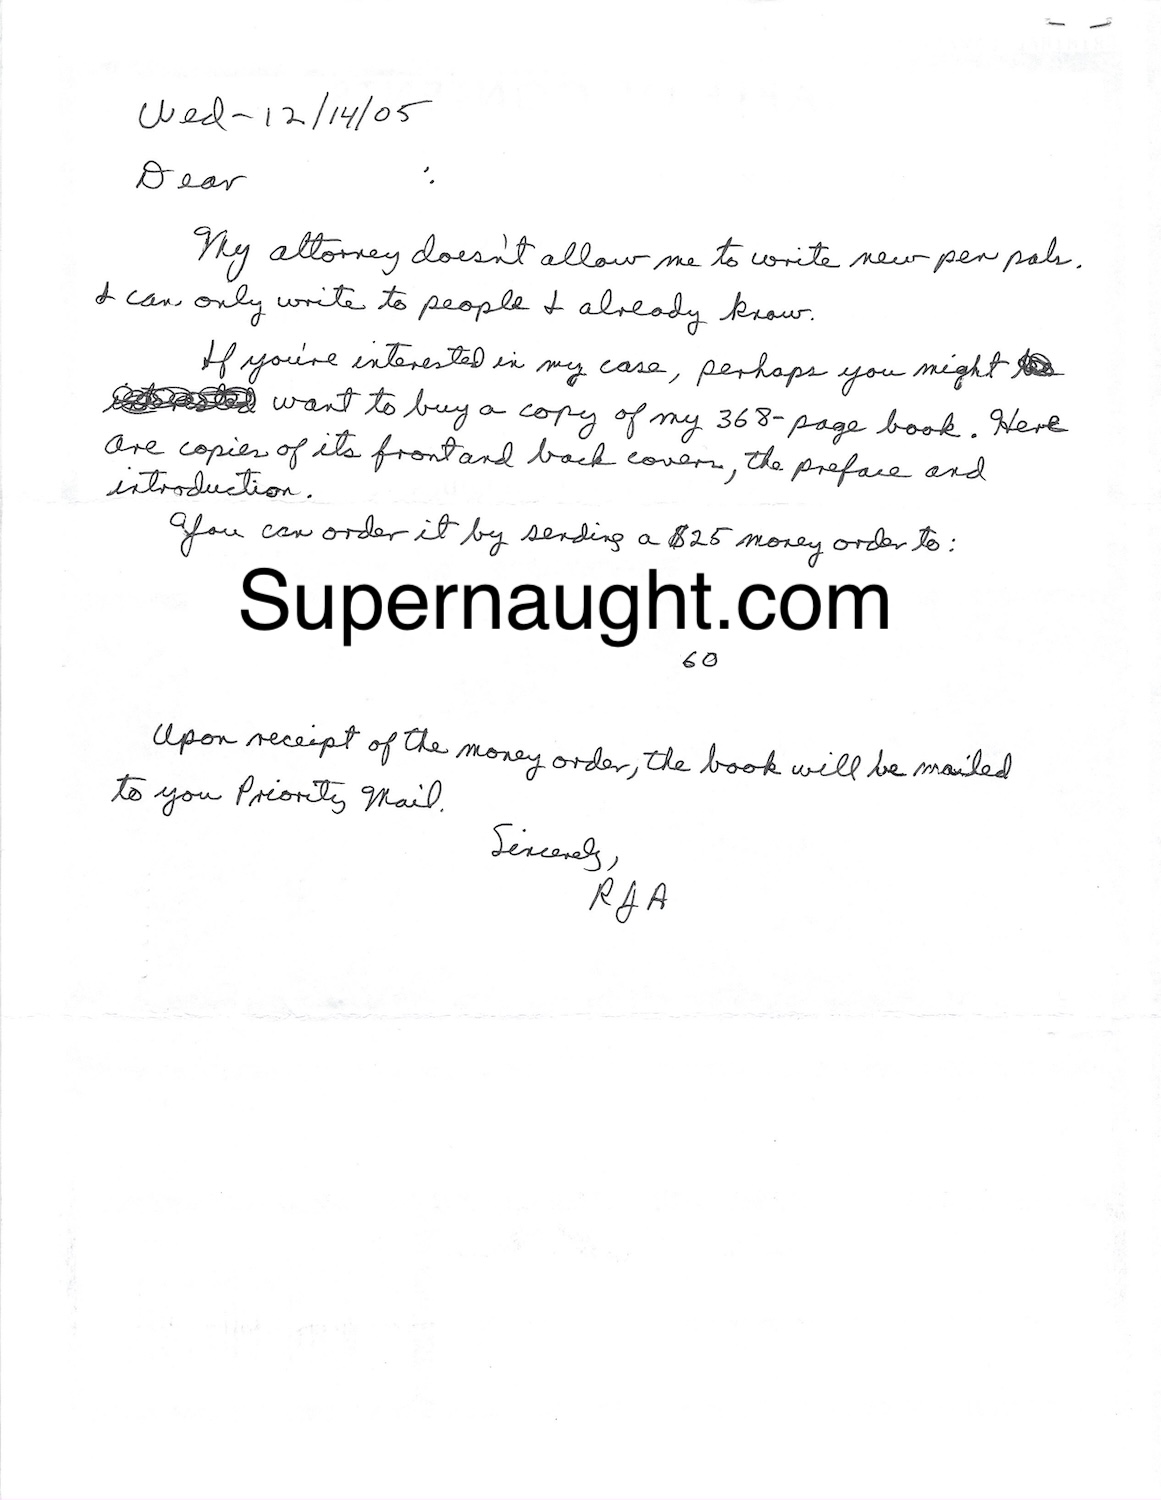 Wed - 12/14/05
Dear :
My attorney doesn't allow me to write new pen pals.
I can only write to people I already know.
If you're interested in my case, perhaps you might
want to buy a copy of my 368-page book. Here
are copies of its front and back covers, the preface and
introduction.
You can order it by sending a $25 money order to:
Supernaught.com
60
Upon receipt of the money order, the book will be mailed
to you Priority Mail.
Sincerely,
RJA